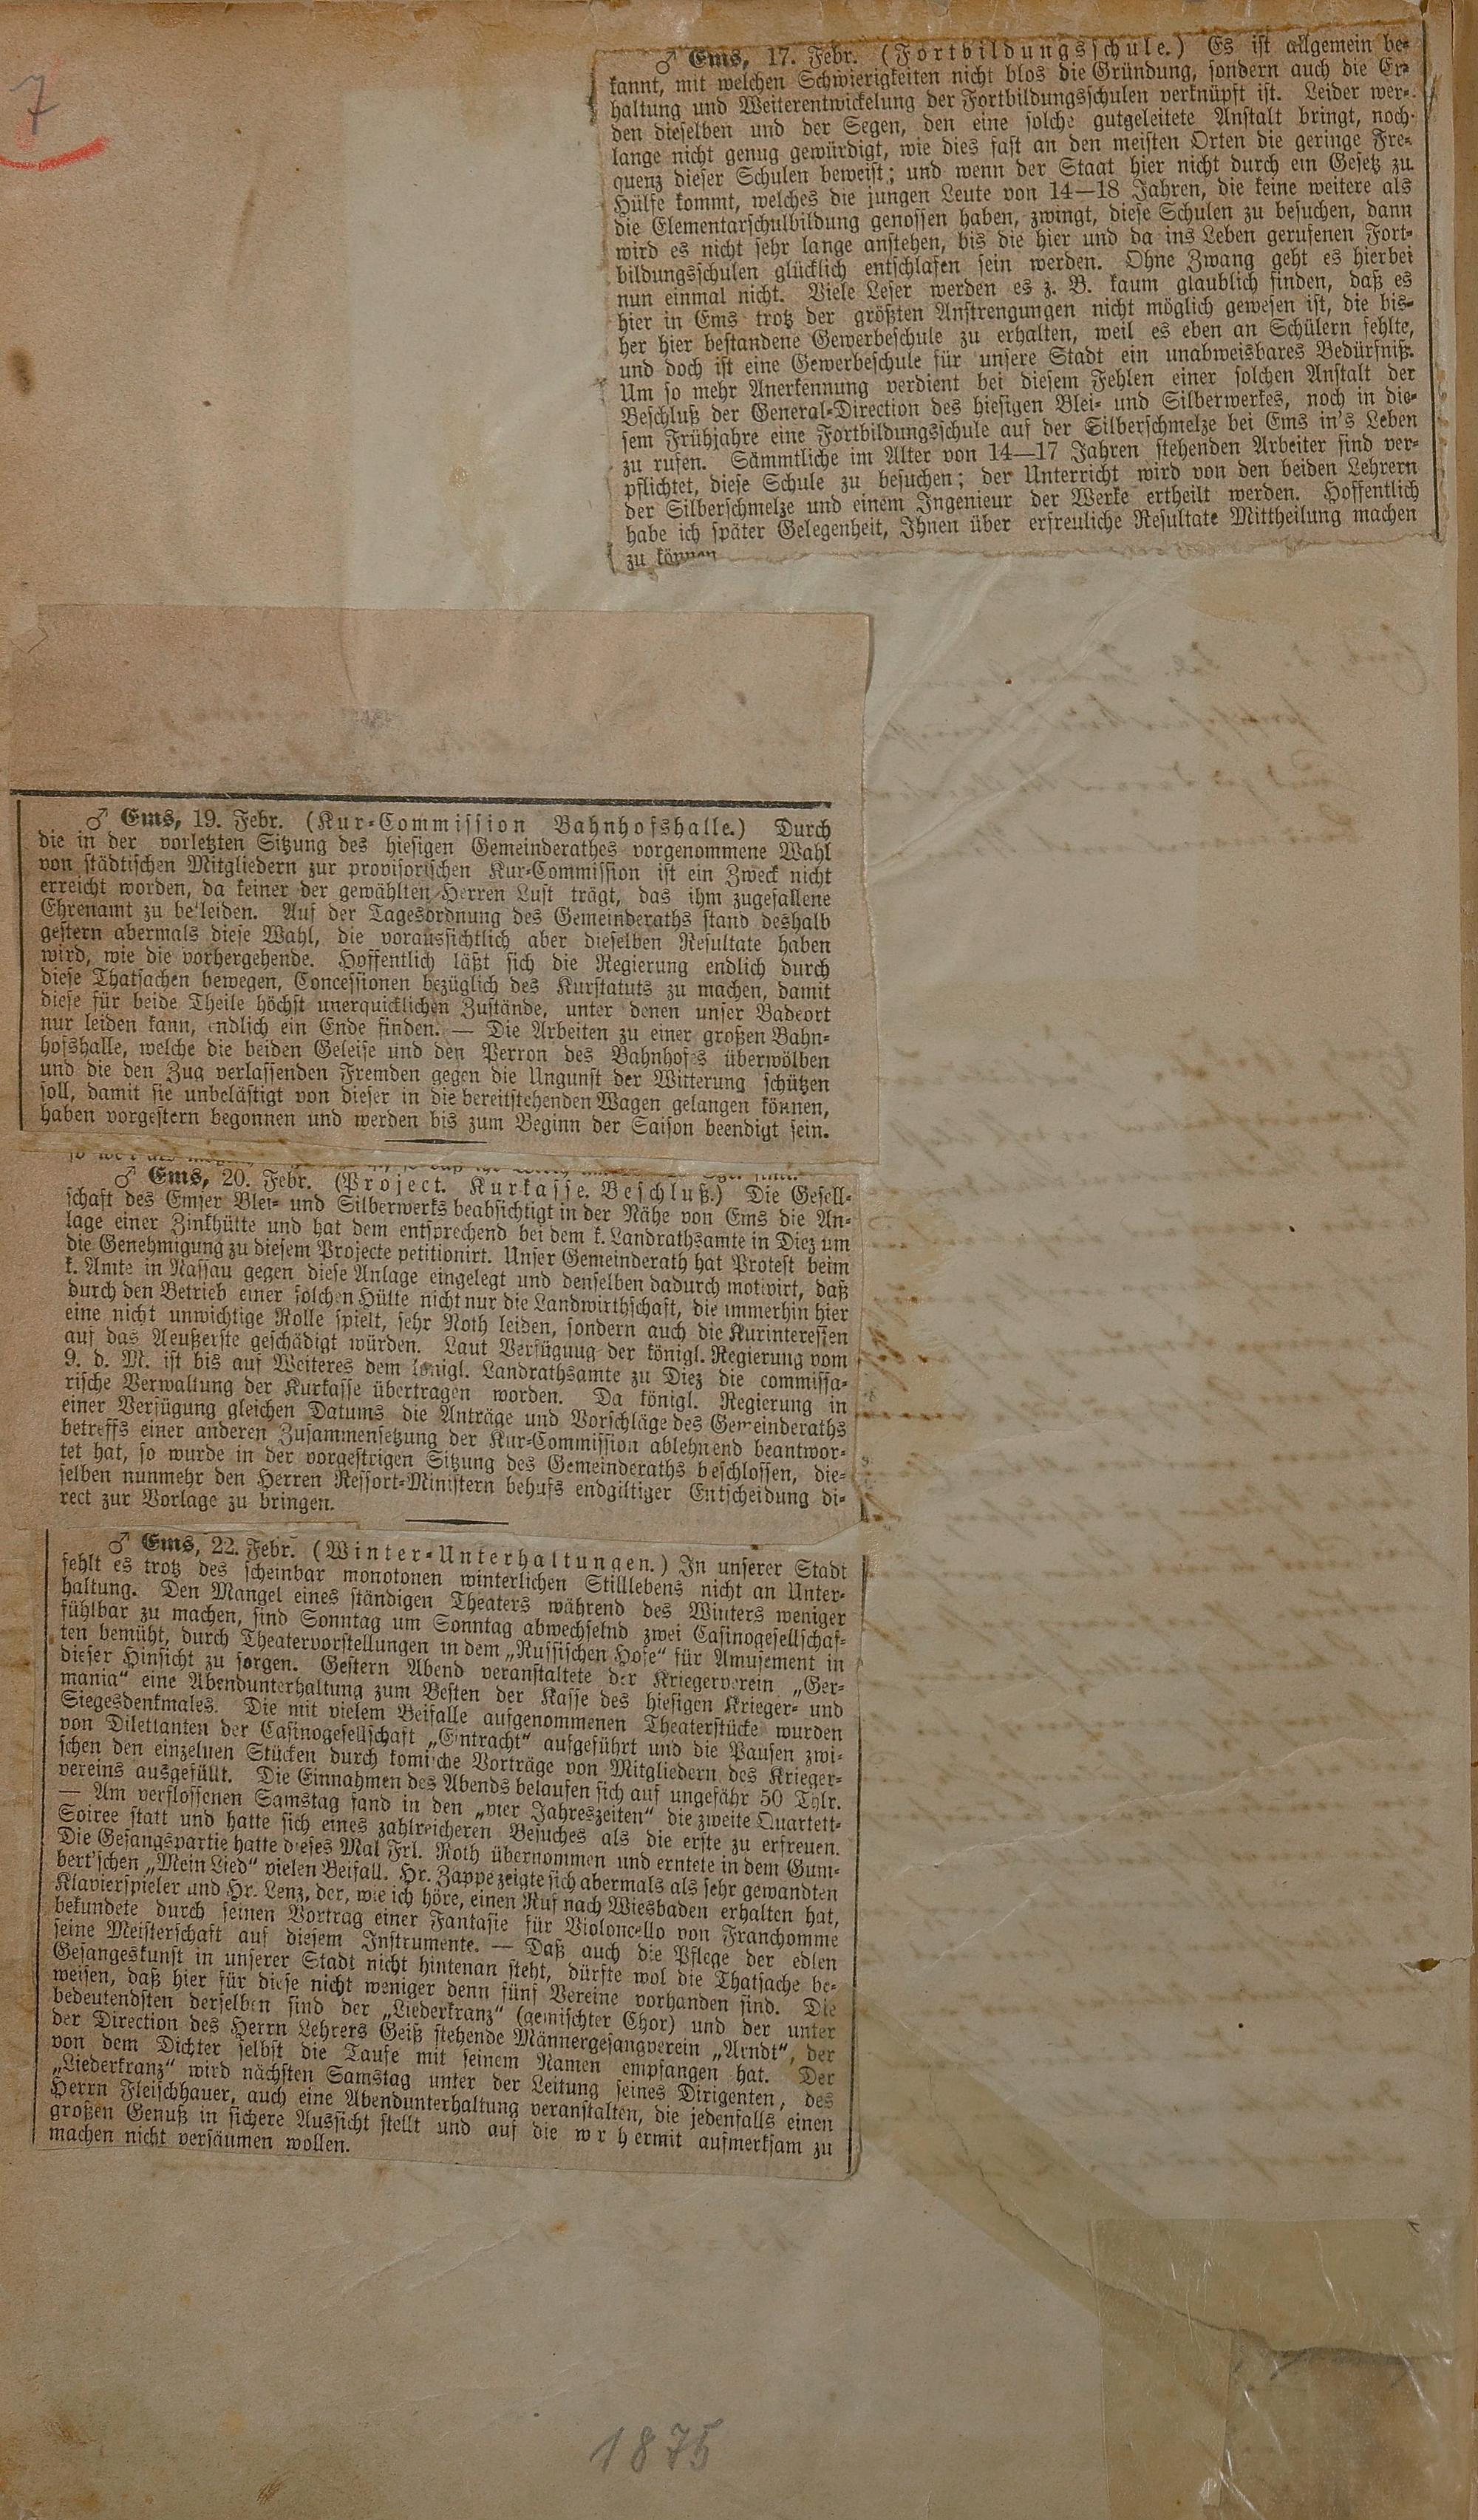 7
♂ Ems, 17. Febr. (Fortbildungsschule.) Es ist allgemein be-
kannt, mit welchen Schwierigkeiten nicht blos die Gründung, sondern auch die Er-
haltung und Weiterentwickelung der Fortbildungsschulen verknüpft ist. Leider wer-
den dieselben und der Segen, den eine solche gutgeleitete Anstalt bringt, noch
lange nicht genug gewürdigt, wie dies fast an den meisten Orten die geringe Fre-
quenz dieser Schulen beweist; und wenn der Staat hier nicht durch ein Gesetz zu
Hülfe kommt, welches die jungen Leute von 14—18 Jahren, die keine weitere als
die Elementarschulbildung genossen haben, zwingt, diese Schulen zu besuchen, dann
wird es nicht sehr lange anstehen, bis die hier und da ins Leben gerufenen Fort-
bildungsschulen glücklich entschlafen sein werden. Ohne Zwang geht es hierbei
nun einmal nicht. Viele Leser werden es z. B. kaum glaublich finden, daß es
hier in Ems trotz der größten Anstrengungen nicht möglich gewesen ist, die bis-
her hier bestandene Gewerbeschule zu erhalten, weil es eben an Schülern fehlte,
und doch ist eine Gewerbeschule für unsere Stadt ein unabweisbares Bedürfniß.
Um so mehr Anerkennung verdient bei diesem Fehlen einer solchen Anstalt der
Beschluß der General-Direction des hiesigen Blei- und Silberwerkes, noch in die-
sem Frühjahre eine Fortbildungsschule auf der Silberschmelze bei Ems in's Leben
zu rufen. Sämmtliche im Alter von 14—17 Jahren stehenden Arbeiter sind ver-
pflichtet, diese Schule zu besuchen; der Unterricht wird von den beiden Lehrern
der Silberschmelze und einem Ingenieur der Werke ertheilt werden. Hoffentlich
habe ich später Gelegenheit, Ihnen über erfreuliche Resultate Mittheilung machen
zu können
♂ Ems, 19. Febr. (Kur-Commission Bahnhofshalle.) Durch
die in der vorletzten Sitzung des hiesigen Gemeinderathes vorgenommene Wahl
von städtischen Mitgliedern zur provisorischen Kur-Commission ist ein Zweck nicht
erreicht worden, da keiner der gewählten Herren Lust trägt, das ihm zugefallene
Ehrenamt zu be'leiden. Auf der Tagesordnung des Gemeinderaths stand deshalb
gestern abermals diese Wahl, die voraussichtlich aber dieselben Resultate haben
wird, wie die vorhergehende. Hoffentlich läßt sich die Regierung endlich durch
diese Thatsachen bewegen, Concessionen bezüglich des Kurstatuts zu machen, damit
diese für beide Theile höchst unerquicklichen Zustände, unter denen unser Badeort
nur leiden kann, endlich ein Ende finden. — Die Arbeiten zu einer großen Bahn-
hofshalle, welche die beiden Geleise und den Perron des Bahnhofes überwölben
und die den Zug verlassenden Fremden gegen die Ungunst der Witterung schützen
soll, damit sie unbelästigt von dieser in die bereitstehenden Wagen gelangen können,
haben vorgestern begonnen und werden bis zum Beginn der Saison beendigt sein.
♂ Ems, 20. Febr. (Project. Kurkasse. Beschluß.) Die Gesell-
schaft des Emser Blei- und Silberwerks beabsichtigt in der Nähe von Ems die An-
lage einer Zinkhütte und hat dem entsprechend bei dem k. Landrathsamte in Diez um
die Genehmigung zu diesem Projecte petitionirt. Unser Gemeinderath hat Protest beim
k. Amte in Nassau gegen diese Anlage eingelegt und denselben dadurch motivirt, daß
durch den Betrieb einer solchen Hütte nicht nur die Landwirthschaft, die immerhin hier
eine nicht unwichtige Rolle spielt, sehr Noth leiden, sondern auch die Kurinteressen
auf das Aeußerste geschädigt würden. Laut Verfügung der königl. Regierung vom
9. d. M. ist bis auf Weiteres dem königl. Landrathsamte zu Diez die commissa-
rische Verwaltung der Kurkasse übertragen worden. Da königl. Regierung in
einer Verfügung gleichen Datums die Anträge und Vorschläge des Gemeinderaths
betreffs einer anderen Zusammensetzung der Kur-Commission ablehnend beantwor-
tet hat, so wurde in der vorgestrigen Sitzung des Gemeinderaths beschlossen, die-
selben nunmehr den Herren Ressort-Ministern behufs endgiltiger Entscheidung di-
rect zur Vorlage zu bringen.
♂ Ems, 22. Febr. (Winter-Unterhaltungen.) In unserer Stadt
fehlt es trotz des scheinbar monotonen winterlichen Stilllebens nicht an Unter-
haltung. Den Mangel eines ständigen Theaters während des Winters weniger
fühlbar zu machen, sind Sonntag um Sonntag abwechselnd zwei Casinogesellschaf-
ten bemüht, durch Theatervorstellungen in dem „Russischen Hofe“ für Amusement in
dieser Hinsicht zu sorgen. Gestern Abend veranstaltete der Kriegerverein „Ger-
mania“ eine Abendunterhaltung zum Besten der Kasse des hiesigen Krieger- und
Siegesdenkmales. Die mit vielem Beifalle aufgenommenen Theaterstücke wurden
von Dilettanten der Casinogesellschaft „Eintracht“ aufgeführt und die Pausen zwi-
schen den einzelnen Stücken durch komische Vorträge von Mitgliedern des Krieger-
vereins ausgefüllt. Die Einnahmen des Abends belaufen sich auf ungefähr 50 Thlr.
— Am verflossenen Samstag fand in den „vier Jahreszeiten“ die zweite Quartett-
Soiree statt und hatte sich eines zahlreicheren Besuches als die erste zu erfreuen.
Die Gesangspartie hatte dieses Mal Frl. Roth übernommen und erntete in dem Gum-
bert'schen „Mein Lied“ vielen Beifall. Hr. Zappe zeigte sich abermals als sehr gewandten
Klavierspieler und Hr. Lenz, der, wie ich höre, einen Ruf nach Wiesbaden erhalten hat,
bekundete durch seinen Vortrag einer Fantasie für Violoncello von Franchomme
seine Meisterschaft auf diesem Instrumente. — Daß auch die Pflege der edlen
Gesangeskunst in unserer Stadt nicht hintenan steht, dürfte wol die Thatsache be-
weisen, daß hier für diese nicht weniger denn fünf Vereine vorhanden sind. Die
bedeutendsten derselben sind der „Liederkranz“ (gemischter Chor) und der unter
der Direction des Herrn Lehrers Geiß stehende Männergesangverein „Arndt“, der
von dem Dichter selbst die Taufe mit seinem Namen empfangen hat. Der
„Liederkranz“ wird nächsten Samstag unter der Leitung seines Dirigenten, des
Herrn Fleischhauer, auch eine Abendunterhaltung veranstalten, die jedenfalls einen
großen Genuß in sichere Aussicht stellt und auf die w r h ermit aufmerksam zu
machen nicht versäumen wollen.
1875